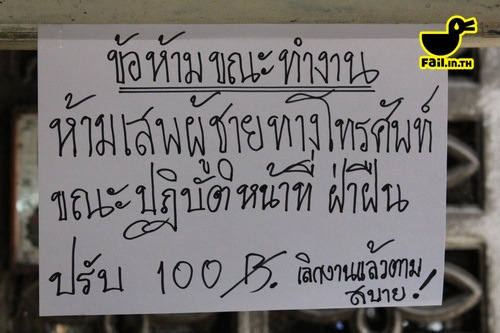 Fail.in.th
ข้อห้ามขณะทำงาน
ห้ามเสพผู้ชายทางโทรศัพท์
ขณะปฏิบัติหน้าที่ ฝ่าฝืน
ปรับ 100 B. เลิกงานแล้วตาม
สบาย!